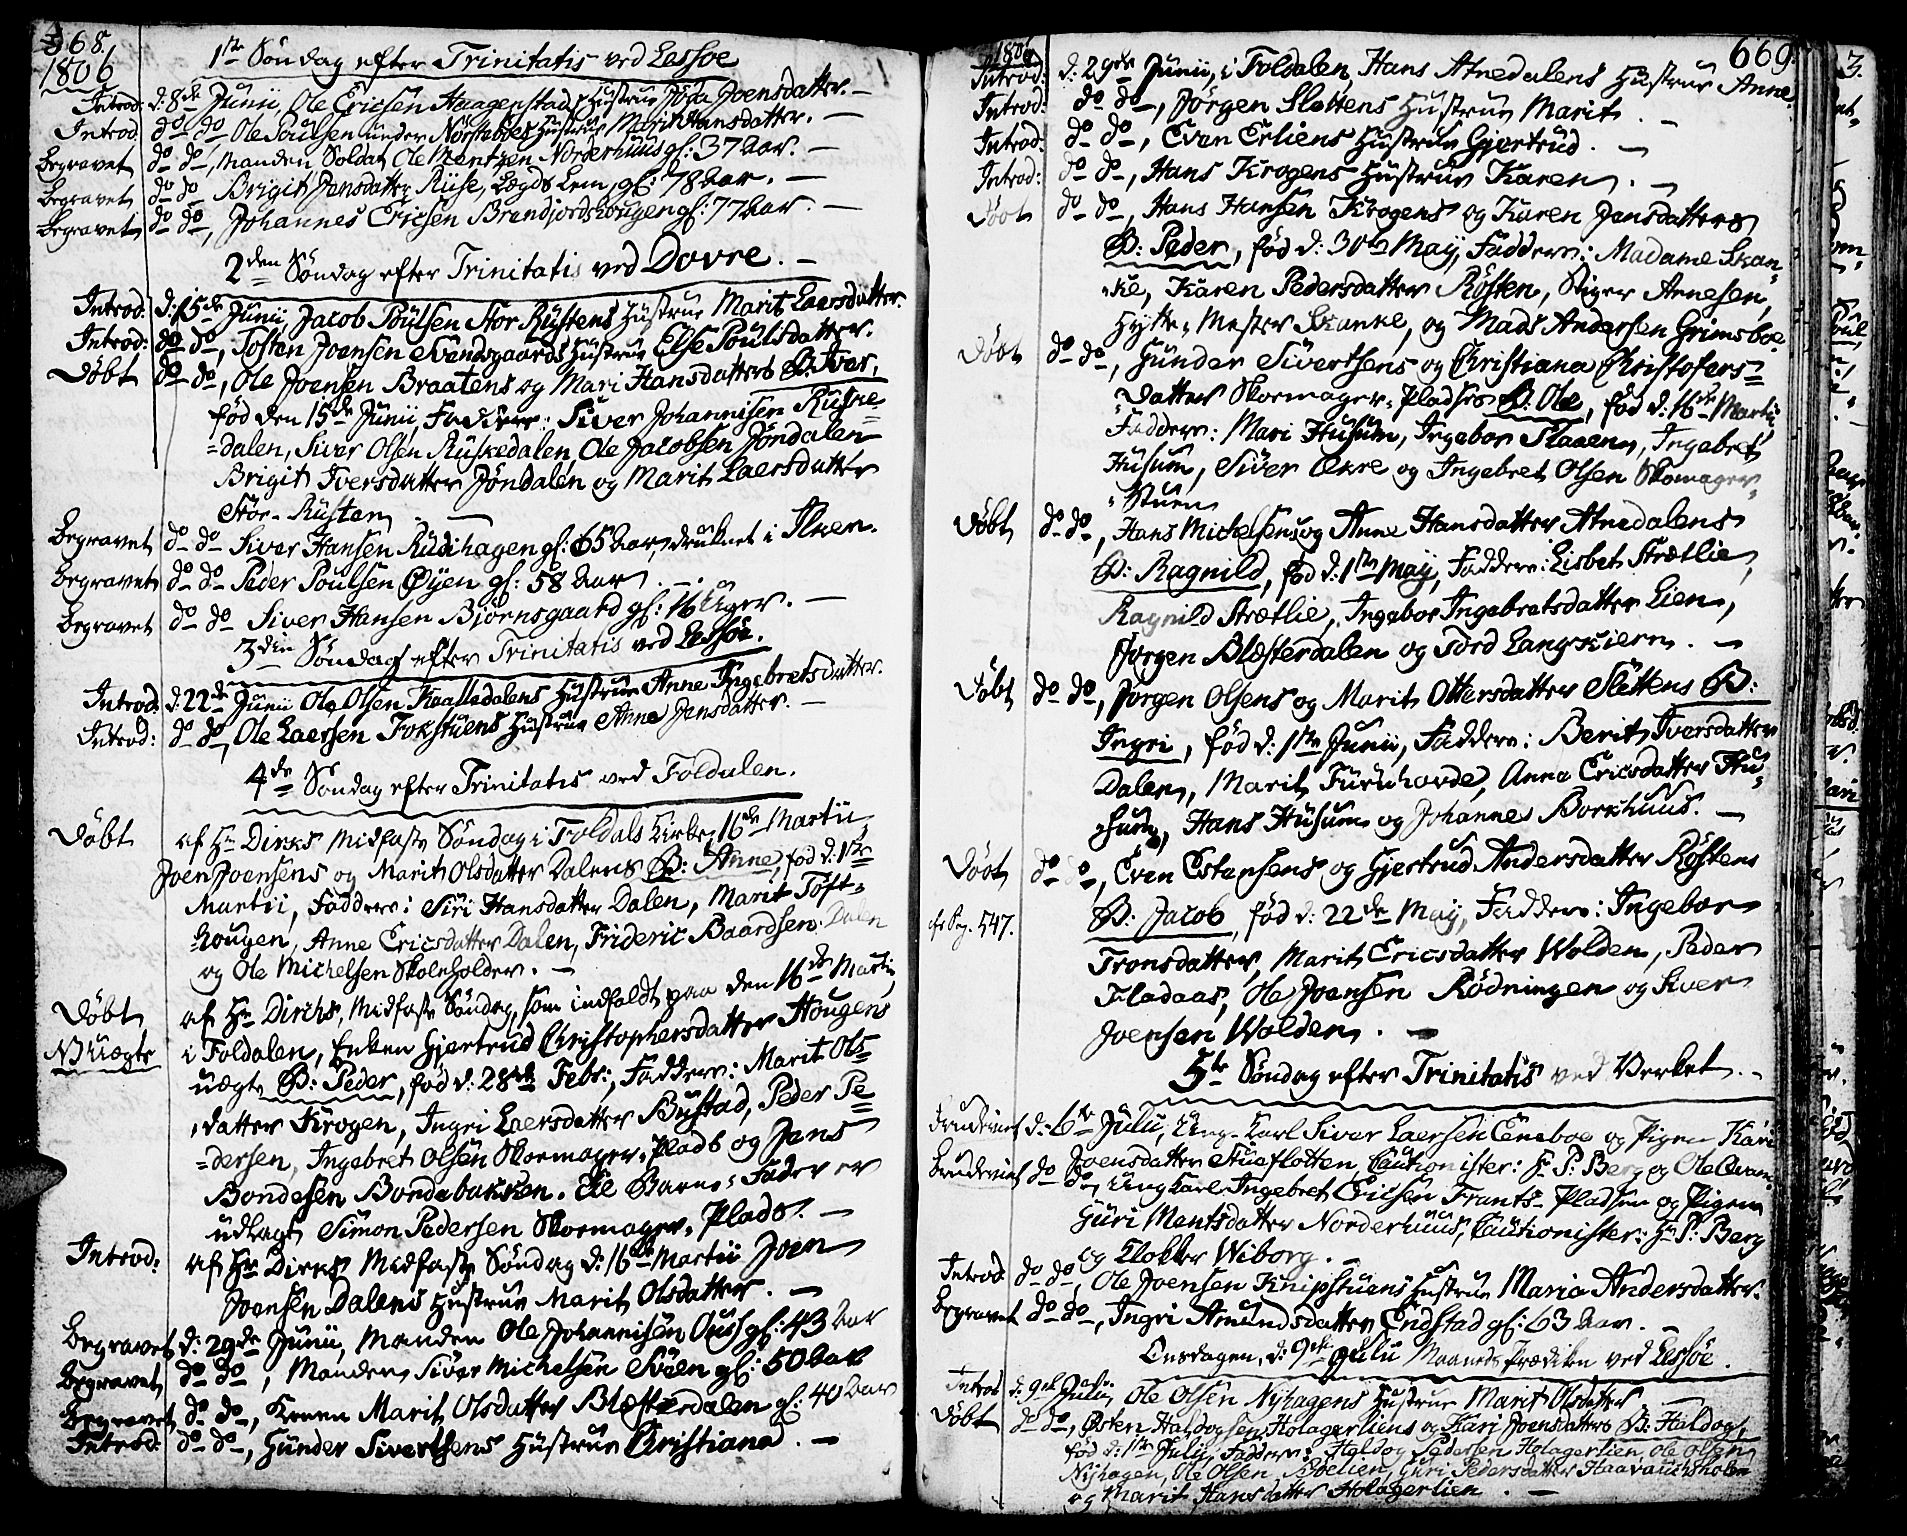 368.
1806
1ste Søndag efter Trinitatis ved Lessøe
Introd: d: 8de Junii, Ole Ericsen Haagenstad Hustrue Joensdatter. –
Introd do do, Ole Poulsen under Hustrue Marit Hansdatter. –
Begravet do do, Manden Soldat Ole Mentzen Norderhuus gl: 37 Aar. –
Begravet do do Brigit Jensdatter Ruse, Lægds Lem, gl: 78 Aar. –
Begravet do do, Johannes Ericsen gl: 77 Aar. –
2den Søndag efter Trinitatis ved Dovre. –
Introd: d: 15de Junii, Jacob Poulsen Stor Rustens Hustrue Marit Laersdatter.
Introd: do do, Tosten Joensen Svendsgaards Hustrue Else Poulsdatter.
Døbt do do, Ole Joensen Braatens og Mari Hansdatters B: Iver,
fød den 15de Junii, Faddere: Siver Johannisen Ruske=
=dalen, Siver Olsen Ruskedalen, Ole Jacobsen Jøndalen
Brigit Iversdatter Jøndalen og Marit Laersdatter
Stor-Rusten
Begravet do do Siver Hansen gl: 65 Aar, druknet i
Begravet do do Peder Poulsen Øyen gl: 58 Aar. –
Begravet do do Siver Hansen Bjørnsgaard gl: 16 Uger. –
3die Søndag efter Trinitatis ved Lessøe.
Introd: d: 22de Junii Ole Olsen Hustrue Anne Ingebretsdatter.
Introd: do do, Ole Laersen Fokstuens Hustrue Anne Jensdatter. –
4de Søndag efter Trinitatis ved Foldalen.
Døbt af Hr Dirks Midfaste Søndag i Foldals Kirke, 16de Martii
Joen Joensens og Marit Olsdatter Dalens B: Anne, fød d: 1ste
Martii, Faddere: Siri Hansdatter Dalen, Marit Toft-
hougen, Anne Ericsdatter Dalen, Frideric Baardsen Dalen
og Ole Michelsen Skoleholder. –
Døbt af Hr Dirchs, Midfaste Søndag, som indfaldt paa den 16de Martii
NB Uægte i Foldalen, Enken Gjertrud Christophersdatter Hougens
uægte B: Peder, fød d: 28de Febr:, Faddere: Marit Ols=
datter Krogen, Ingri Laersdatter Bustad, Peder Pe=
=dersen, Ingebret Olsen Skomager-Plads og Jens
Bondesen Bondebakken. Til Barne-Fader er
udlagt Simon Pedersen Skomager-Plads. –
Introd: af Hr Dirks Midfaste Søndag d: 16de Martii Joen
Joensen Dalens Hustrue Marit Olsdatter. –
Begravet d: 29de Junii, Manden Ole Johannisen gl: 43 Aar
Begravet do do, Manden Siver Michelsen Svéen gl: 50 Aar
Begravet do do, Konen Marit Olsdatter Blæsterdalen gl: 40 Aar
Introd: do do, Gunder Sivertsens Hustrue Christiana. –
669.
1806
Introd: d: 29de Junii, i Foldalen, Hans Atnedalens Hustrue Anne
Introd: do do, Jørgen Slettens Hustrue Marit. –
Introd: do do, Even Erliens Hustrue Gjertrud. –
Introd: do do, Hans Krogens Hustrue Karen. –
Døbt do do, Hans Hansen Krogens og Karen Jensdatters
B: Peder, fød d: 30te May, Faddere: Madame Skan-
ke, Karen Pedersdatter Røsten, Stiger Arnesen,
Hytte-Mester Skanke, og Mads Andersen Grimsboe.
Døbt do do, Gunder Sivertsens og Christiana Christofers=
datter Skomager-Pladses B: Ole, fød d: 16de Martii
Faddere: Mari Husum, Ingebor Plaaen, Ingebret
Husum, Siver Økre og Ingebret Olsen Skomager-
Stuen
Døbt do do, Hans Michelsens og Anne Hansdatter Atnedalens
B: Ragnild, fød d: 1ste May, Faddere: Lisbet Strætlie,
Ragnild Strætlie, Ingebor Ingebretsdatter Lien,
Jørgen Blæsterdalen og Tord Langkiern. –
Døbt do do, Jørgen Olsens og Marit Ottersdatter Slettens B:
Ingri, fød d: 1ste Junii, Faddere: Berit Iversdatter
Dalen, Marit Furuhovde, Anna Ericsdatter Hu-
sum, Hans Husum og Johannes Borkhuus. –
Døbt do do, Even Estensens og Gjertrud Andersdatter Røstens
cfr Pag. 547. B: Jacob, fød d: 22de May, Faddere: Ingebor
Tronsdatter, Marit Ericsdatter Wolden, Peder
Fladaas, Ole Joensen Rødningen og Siver
Joensen Wolden. –
5te Søndag efter Trinitatis ved Verket. –
Brudeviet d: 6te Julii, Ung-Karl Siver Laersen Eneboe og Pigen Kari
Joensdatter Stueflotten, Cautionister: Hr P: Berg og Ole
Brudeviet do do, Ung Karl Ingebret Ericsen Frants-Pladsen og Pigen
Guri Mentsdatter Norderhuus, Cautionister: Hr P: Berg
og Klokker Wiborg. –
Introd: do do, Ole Joensen Knipstuens Hustrue Maria Andersdatter.
Begravet do do, Ingri Amundsdatter Endstad gl: 63 Aar. –
Onsdagen, d: 9de Julii Maaneds Prædiken ved Lessøe.
Introd d: 9de Julii, Ole Olsen Nyhagens Hustrue Marit Olsdatter –
Døbt do do, Østen Haldogsen Holagerliens og Kari Joensdatters B: Haldog,
fød d: 1ste Julii, Faddere: Haldog Pedersen Holagerlien, Ole Olsen
Nyhagen, Ole Olsen, Guri Pedersdatter
og Marit Hansdatter Holagerlien. –